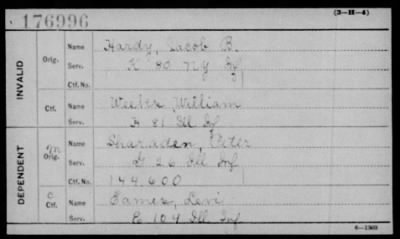 176996
(3-H-4)
INVALID
Orig.
Name Hardy, Jacob B.
Serv. K 80 NY Inf
Ctf. No.
Ctf.
Name William
Serv. 81 Ill Inf
DEPENDENT
m Orig.
Name Sharaden, Peter
Serv. G 26 Ill Inf
Ctf. No. 144,600
C Ctf.
Name Eames, Levi
Serv. E 104 Ill Inf